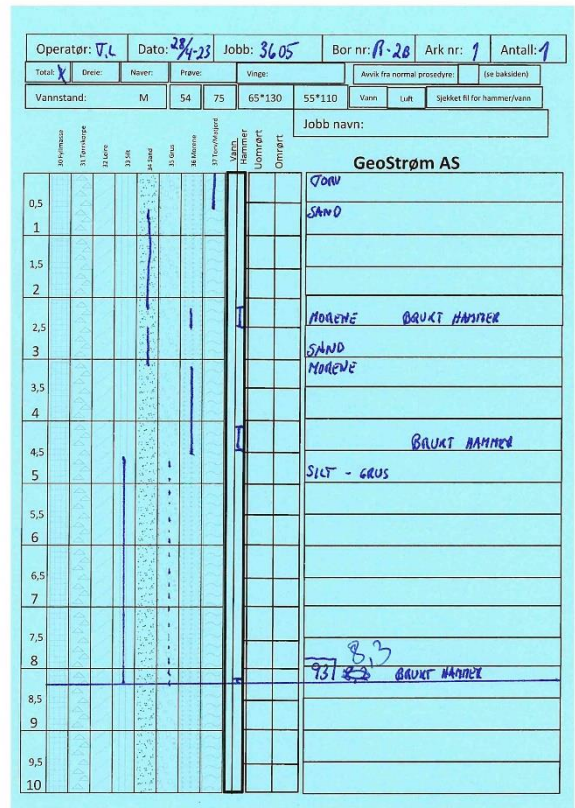 Operatør: T.L Dato: 28/4-23 Jobb: 3605 Bor nr: R-2B Ark nr: 1 Antall: 1
Total: X Dreie: Naver: Prøve: Vinge: Avvik fra normal prosedyre: (se baksiden)
Vannstand: M 54 75 65*130 55*110 Vann Luft Sjekket fil for hammer/vann
Jobb navn:
30 Fyllmasse
31 Tørrskorpe
32 Leire
33 Silt
34 Sand
35 Grus
36 Morene
37 Torv/Matjord
Vann
Hammer
Uomrørt
Omrørt
GeoStrøm AS
TORV
0,5 SAND
1
1,5
2
2,5 MORENE BRUKT HAMMER
3 SAND
MORENE
3,5
4
4,5 BRUKT HAMMER
5 SILT - GRUS
5,5
6
6,5
7
7,5
8 8,3
93 BRUKT HAMMER
8,5
9
9,5
10